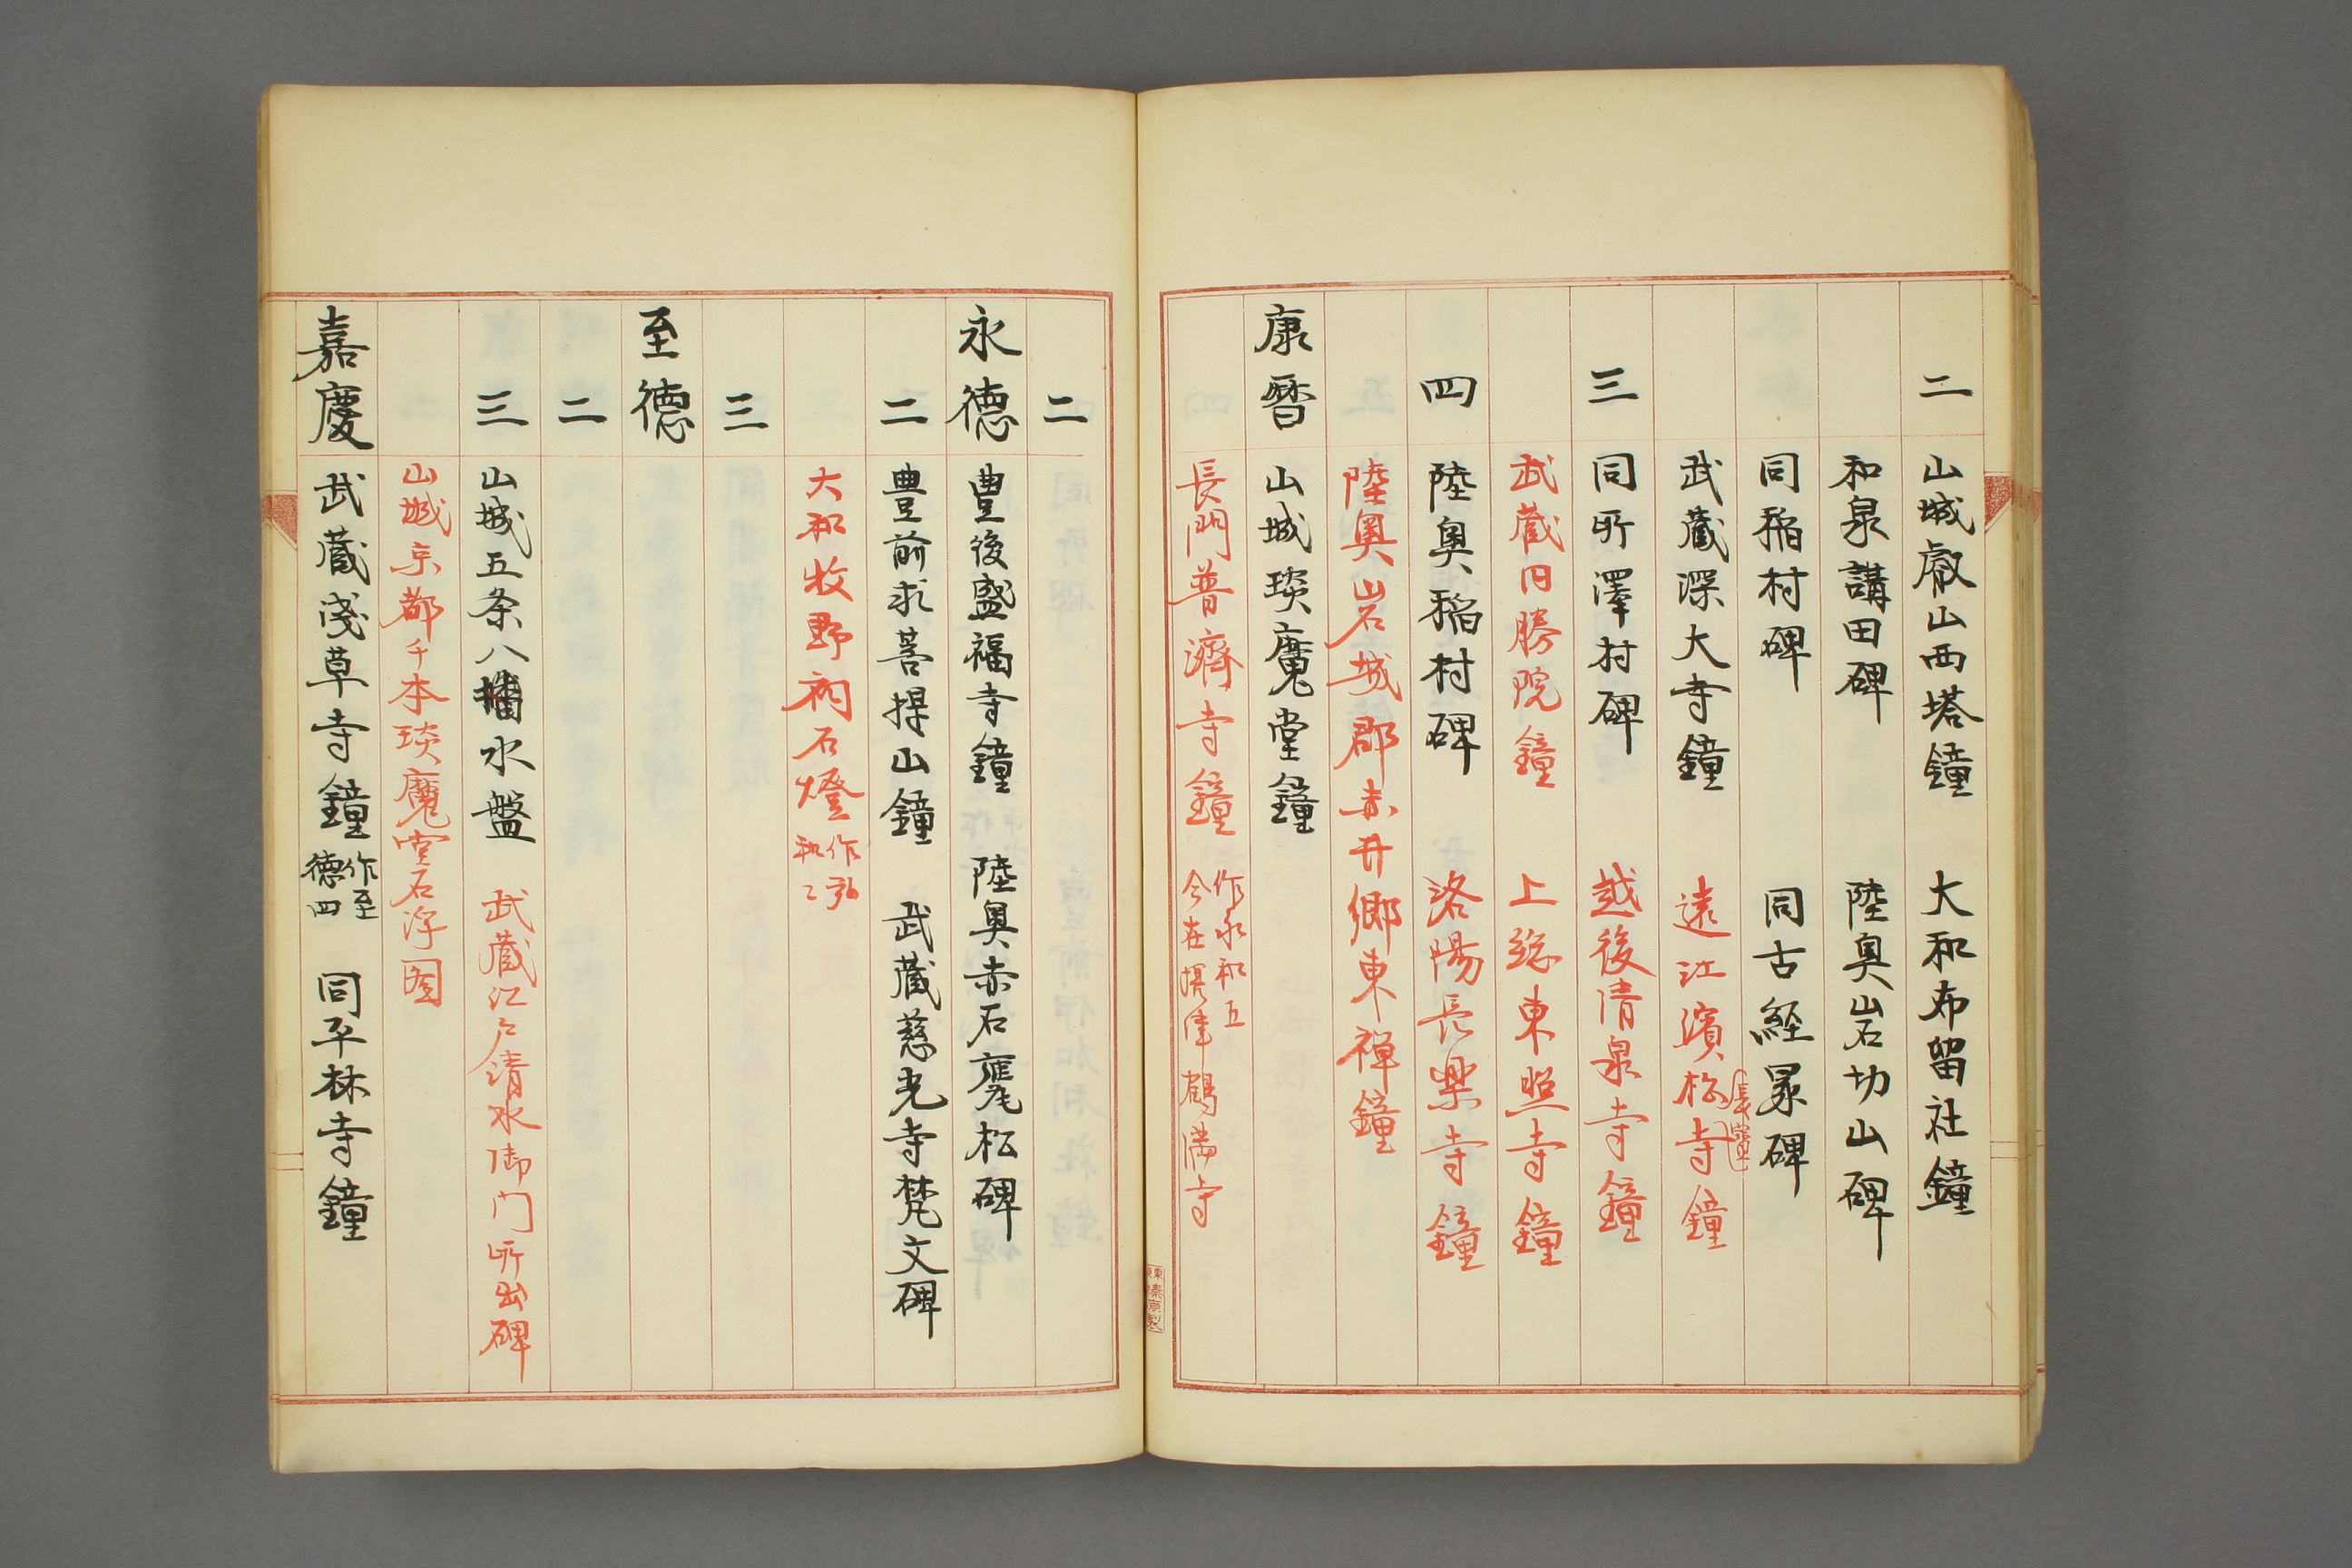 二 山城叡山西塔鐘 大和布留社鐘
和泉講田碑 陸奥岩切山碑
同稲村碑 同古経冢碑
武蔵深大寺鐘 遠江濱松寺鐘
三 同所澤村碑 越後清泉寺鐘
武蔵日勝院鐘 上総東照寺鐘
四 陸奥稲村碑 洛陽長楽寺鐘
陸奥岩城郡赤井郷東禅鐘
康暦 山城琰魔堂鐘
長門普濟寺鐘 作永和五 今在摂津鶴満寺
二
永徳 豊後盛福寺鐘 陸奥赤石庵松碑
二 豊前求菩提山鐘 武蔵慈光寺梵文碑
大和牧野祠石燈 作弘和二
三
至徳
二
三 山城五条八幡水盤 武蔵江戸清水御门所出碑
山城京都千本琰魔堂石浮图
嘉慶 武蔵浅草寺鐘 作至徳四 同平林寺鐘